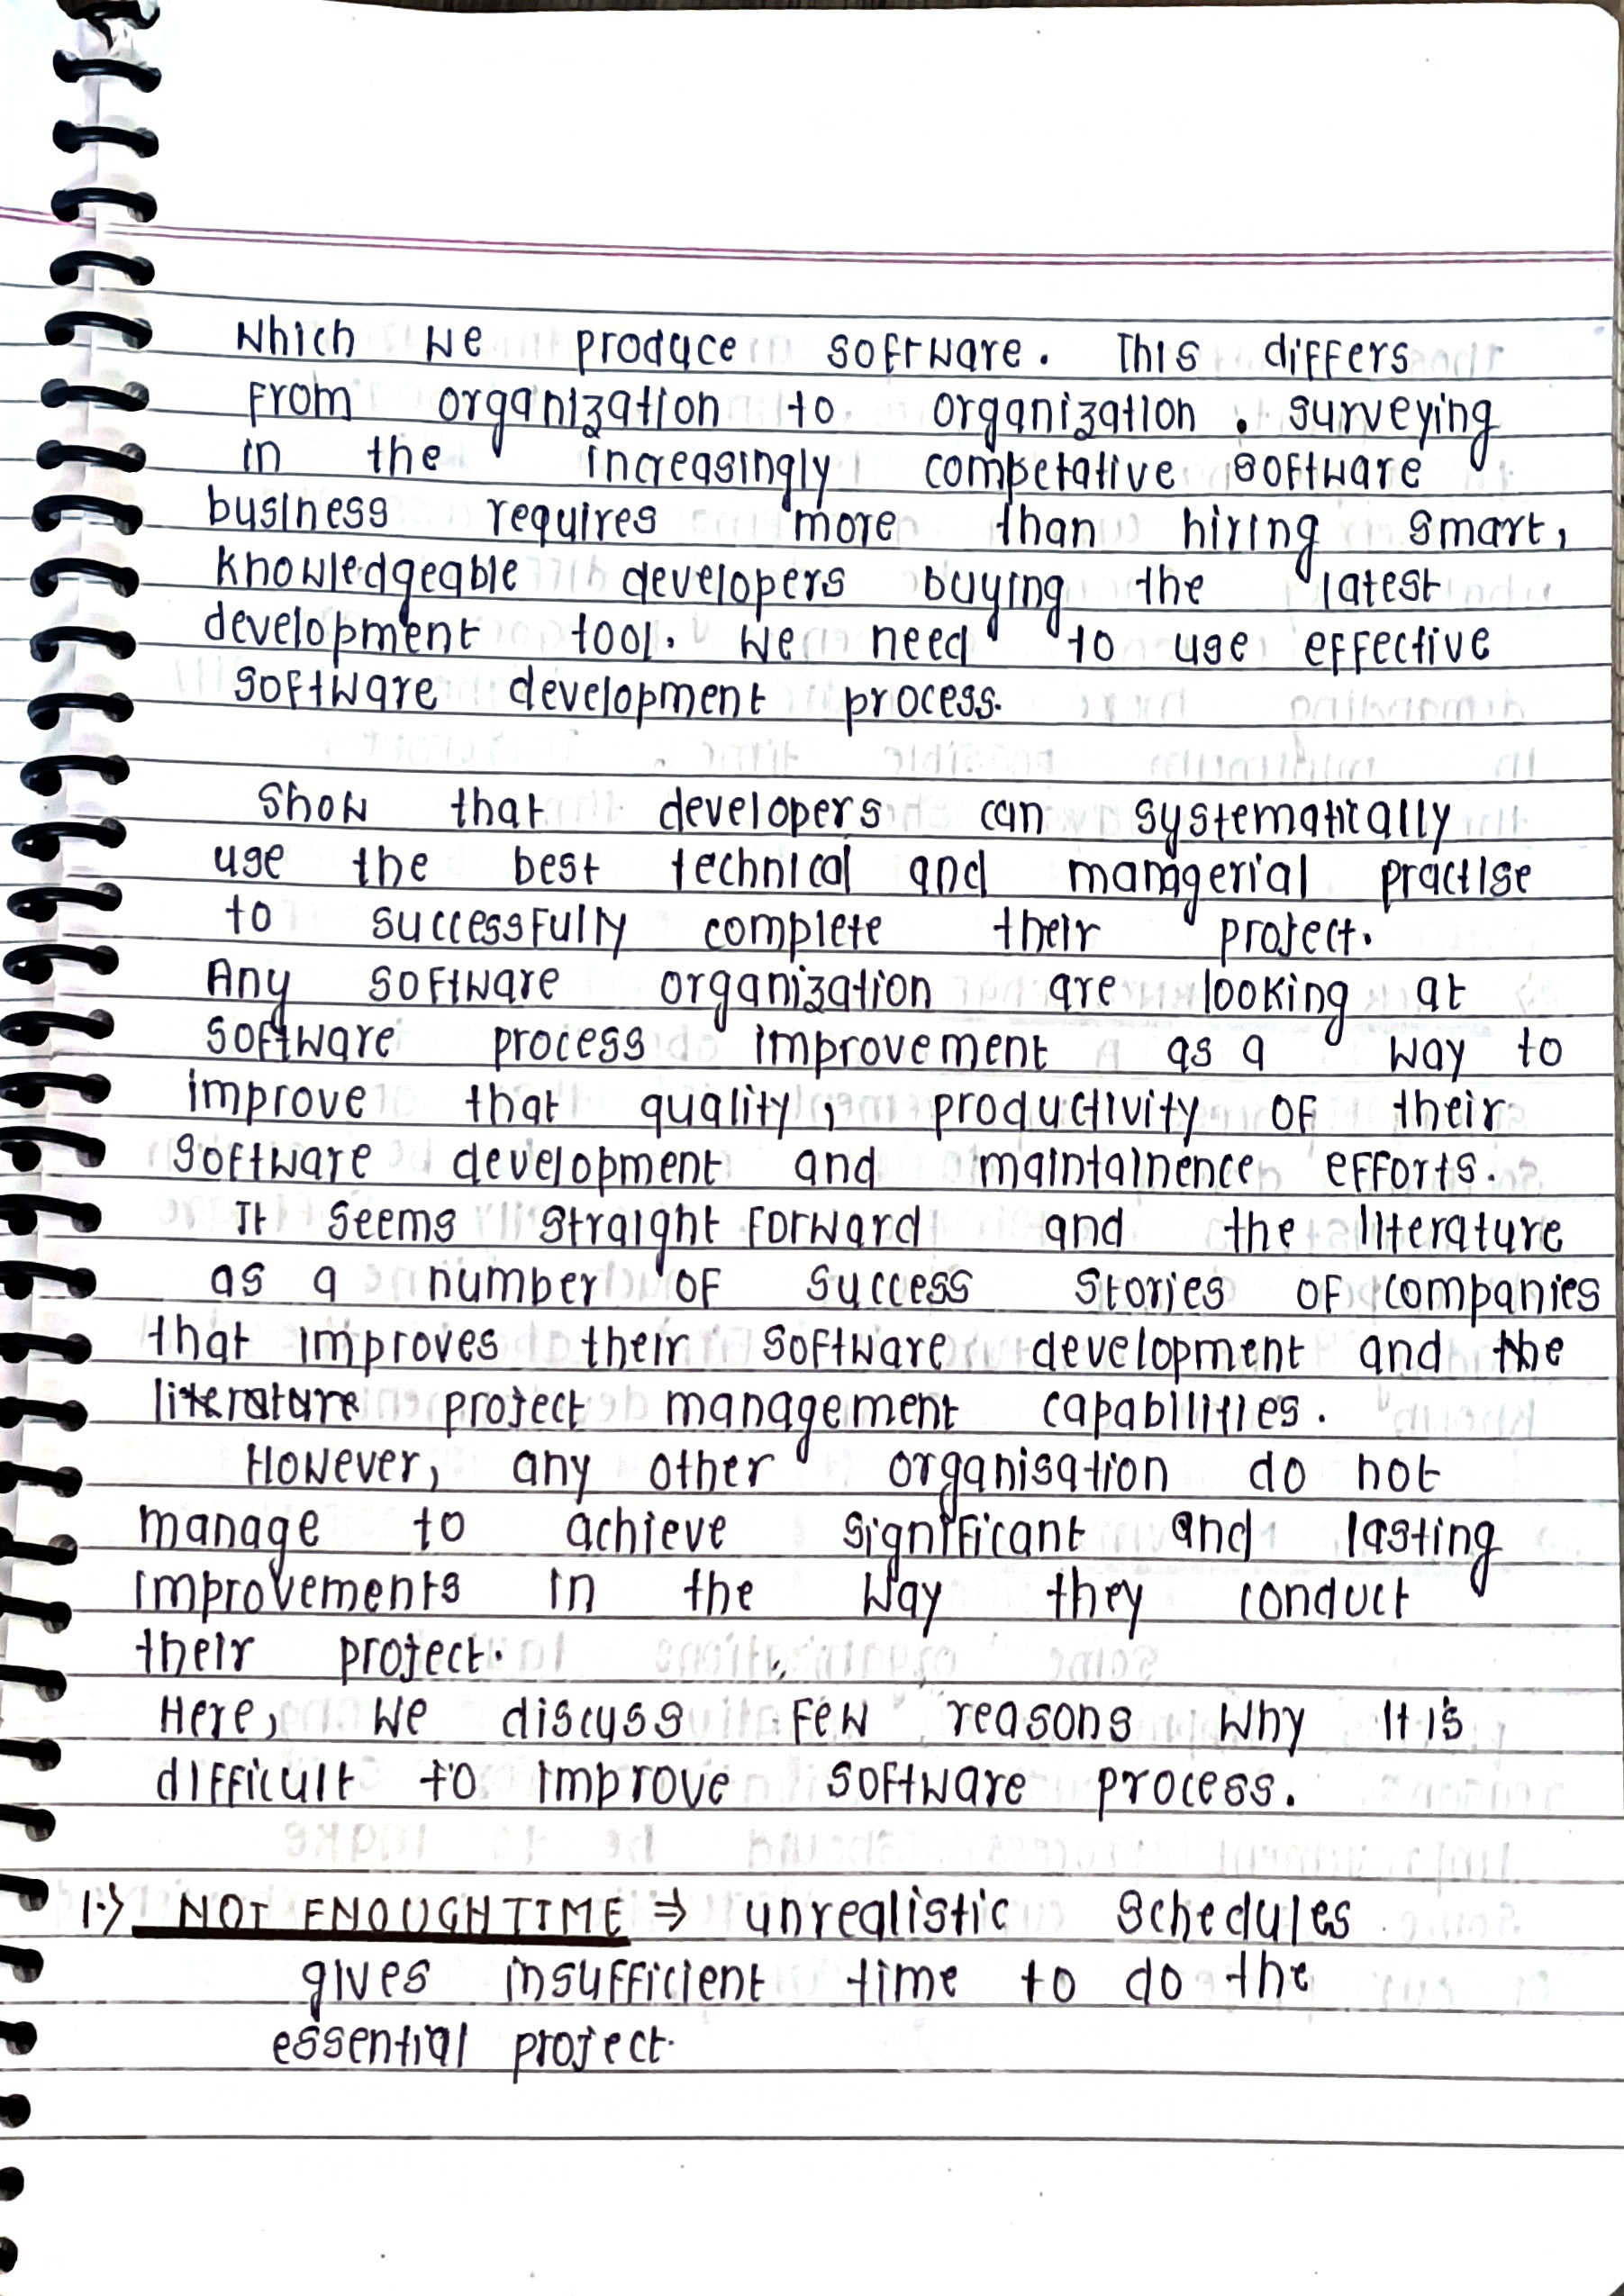 Which we produce software. This differs
from organization to organization. surveying
in the increasingly competative software
business requires more than hiring smart,
knowledgeable developers buying the latest
development tool. We need to use effective
software development process.
Show that developers can systematically
use the best technical and managerial practise
to successfully complete their project.
Any software organization are looking at
software process improvement as a way to
improve that quality, productivity of their
software development and maintainence efforts.
It seems straight forward and the literature
as a number of success stories of companies
that improves their software development and the
literature project management capabilities.
However, any other organisation do not
manage to achieve significant and lasting
improvements in the way they conduct
their project.
Here, we discuss few reasons why it is
difficult to improve software process.
1.> NOT ENOUGH TIME ⇒ unrealistic schedules
gives insufficient time to do the
essential project.